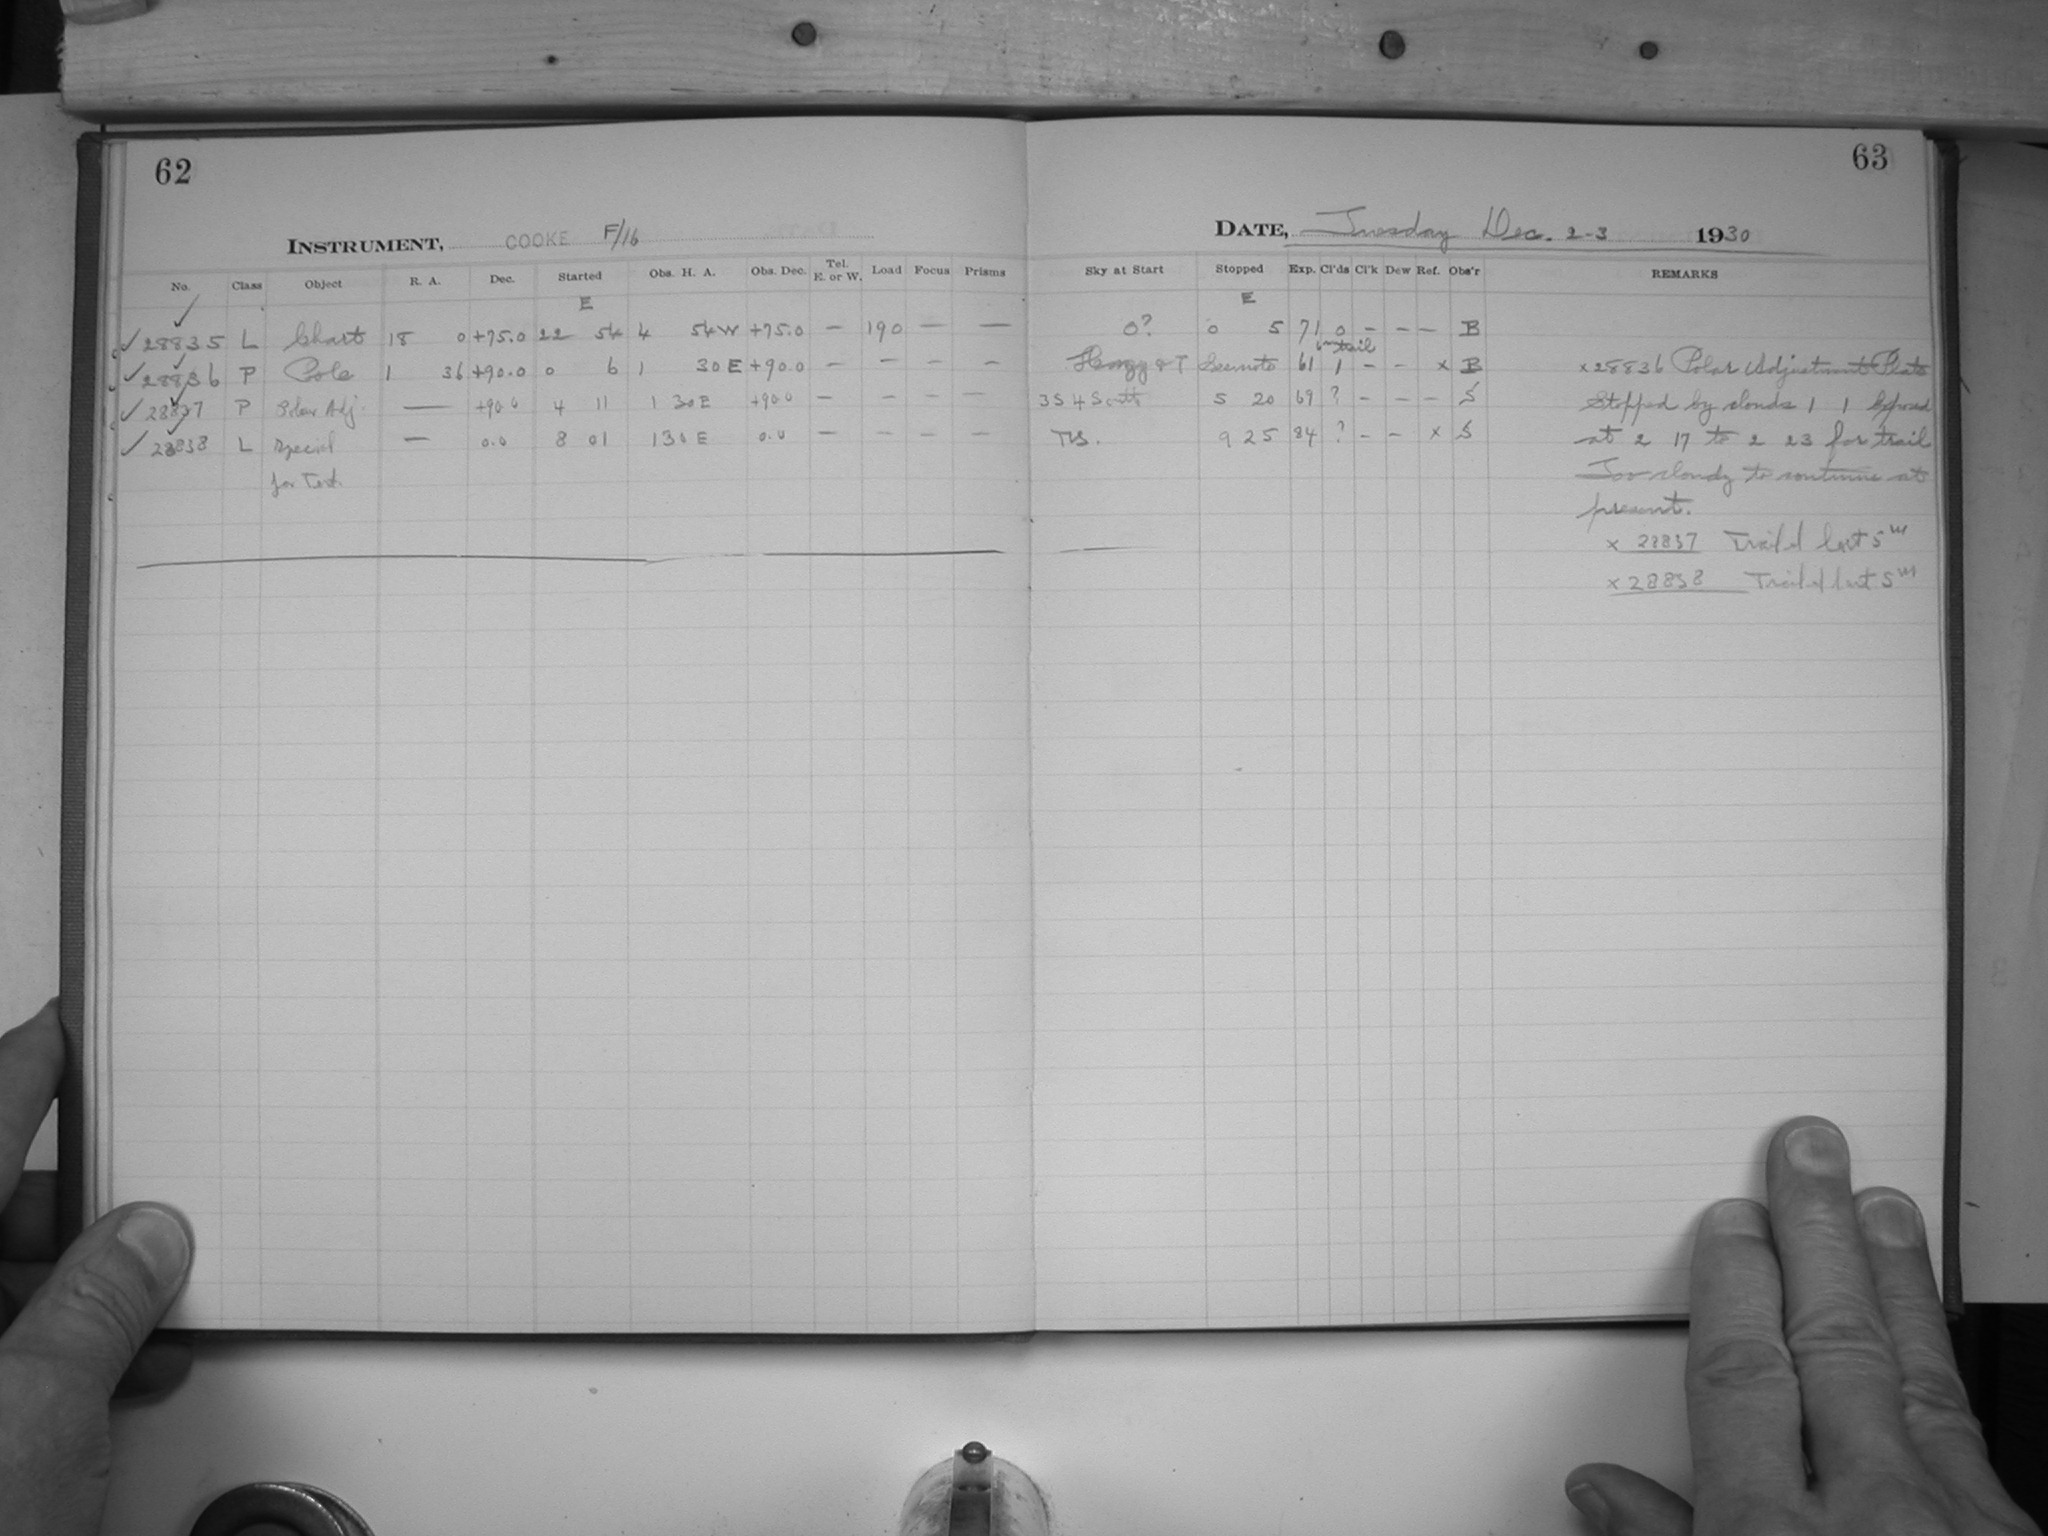 62
INSTRUMENT, COOKE F/16
No. Class Object R. A. Dec. Started Obs. H. A. Obs. Dec. Tel. E. or W. Load Focus Prisms
E
✓ 28835 L Chart 18 0 +75.0 22 54 4 54 W +75.0 — 190 — —
✓ 28836 P Pole 1 36 +90.0 0 6 1 30 E +90.0 — — — —
✓ 28837 P Polar Adj. — +90.0 4 11 1 30 E +90.0 — — — —
✓ 28838 L Special — 0.0 8 01 1 30 E 0.0 — — — —
for Test.
63
DATE, Tuesday Dec. 2-3 1930
Sky at Start Stopped Exp. Cl'ds Cl'k Dew Ref. Obs'r REMARKS
E
0? 0 5 71 0 – – – B
trail
Hazy & T See note 61 1 – – x B x 28836 Polar Adjustment Plate
3 S 4 5 20 69 ? – – – S Stopped by clouds 1 1 Exposed
9 25 84 ? – – x S at 2 17 to 2 23 for trail
Too cloudy to continue at
present.
x 28837 Trailed last 5m
x 28838 Trailed last 5m